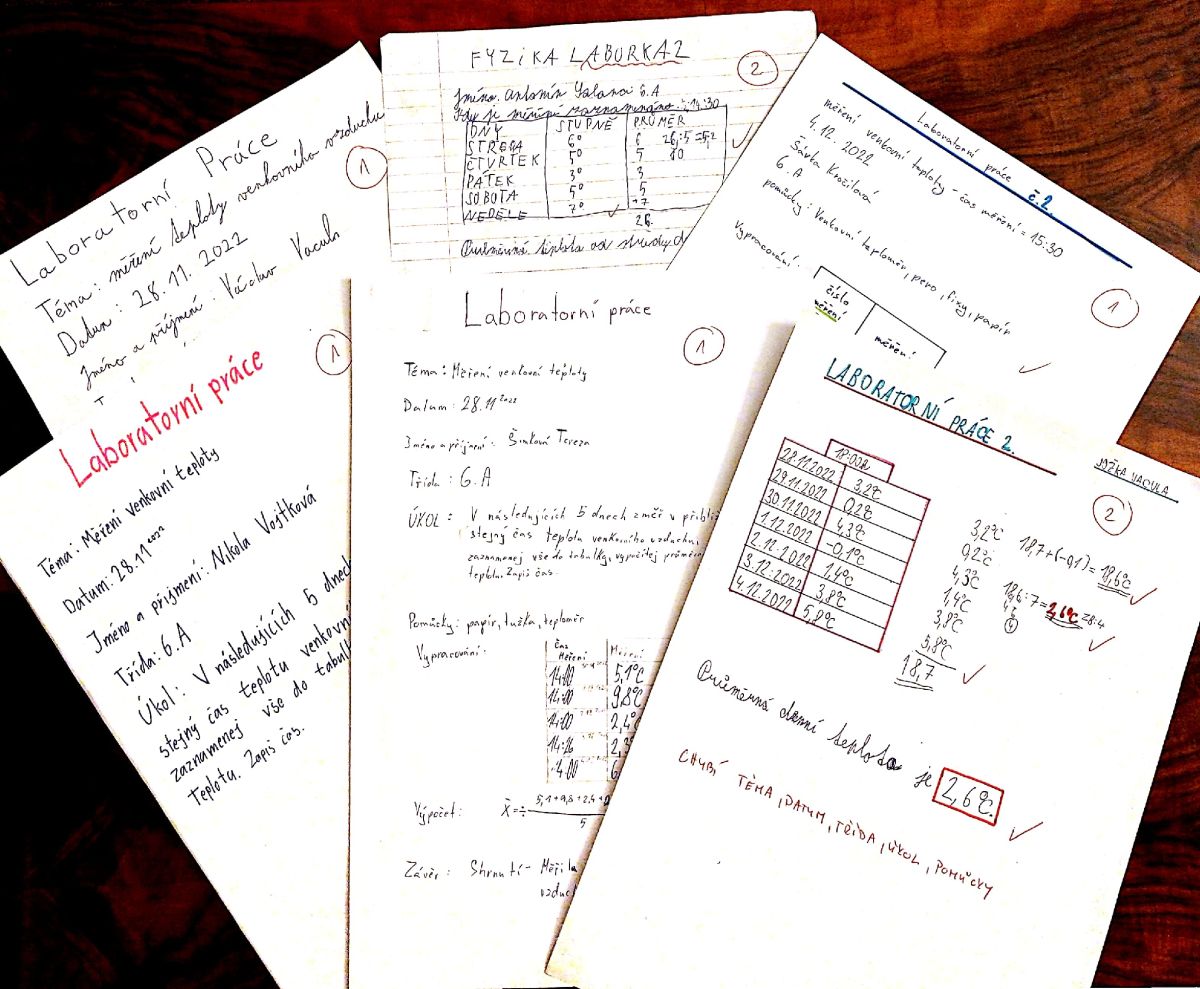 Laboratorní Práce
1
Téma: měření teploty venkovního vzduchu
Datum: 28.11.2022
Jméno a příjmení: Václav Vacula
FYZIKA LABORKA 2
2
Jméno: Antonín 6.A
Kdy je měření zaznamenáno: 14:30
DNY STUPNĚ PRŮMĚR
STŘEDA 6° 6 26:5=5,2
ČTVRTEK 5° 5 10
PÁTEK 3° 3
SOBOTA 5° 5
NEDĚLE 7° +7
26
Průměrná teplota od středy d
Laboratorní práce č.2.
měření venkovní teploty - čas měření = 15:30
4.12.2022
Šárka
6.A
pomůcky: Venkovní teploměr, pero, fixy, papír
Vypracování:
číslo měření
měření
1
Laboratorní práce
1
Téma: Měření venkovní teploty
Datum: 28.11 2022
Jméno a příjmení: Nikola Vostková
Třída: 6.A
Úkol: V následujících 5 dnech
stejný čas teplotu venkovní
zaznamenej vše do tabulk
Teplotu. Zapiš čas.
Laboratorní práce
1
Téma: Měření venkovní teploty
Datum: 28.11 2022
Jméno a příjmení: Šimková Tereza
Třída: 6.A
ÚKOL: V následujících 5 dnech změř v přibliž
stejný čas teplotu venkovního vzduchu,
zaznamenej vše do tabulky, vypočítej průměrn
teplotu. Zapiš čas.
Pomůcky: papír, tužka, teploměr
Vypracování:
Čas Měření Měření
14:00 5,1°C
14:00 9,8°C
14:00 2,4°
14:26 2,3
14:00 6
Výpočet: x̄ = 5,1+9,8+2,4+2
5
Závěr: Shrnutí - Měřila
vzduch
LABORATORNÍ PRÁCE 2.
JOŽKA VACULA
2
18:00h
28.11.2022 3,2°C
29.11.2022 0,2°C
30.11.2022 4,3°C
1.12.2022 -0,1°C
2.12.2022 1,4°C
3.12.2022 3,8°C
4.12.2022 5,8°C
3,2°C
0,2°C
4,3°C
1,4°C
3,8°C
5,8°C
18,7
18,7+(-0,1)=18,6°C
18,6:7=2,6°C
Průměrná denní teplota je 2,6°C.
CHYBÍ TÉMA, DATUM, TŘÍDA, ÚKOL, POMŮCKY